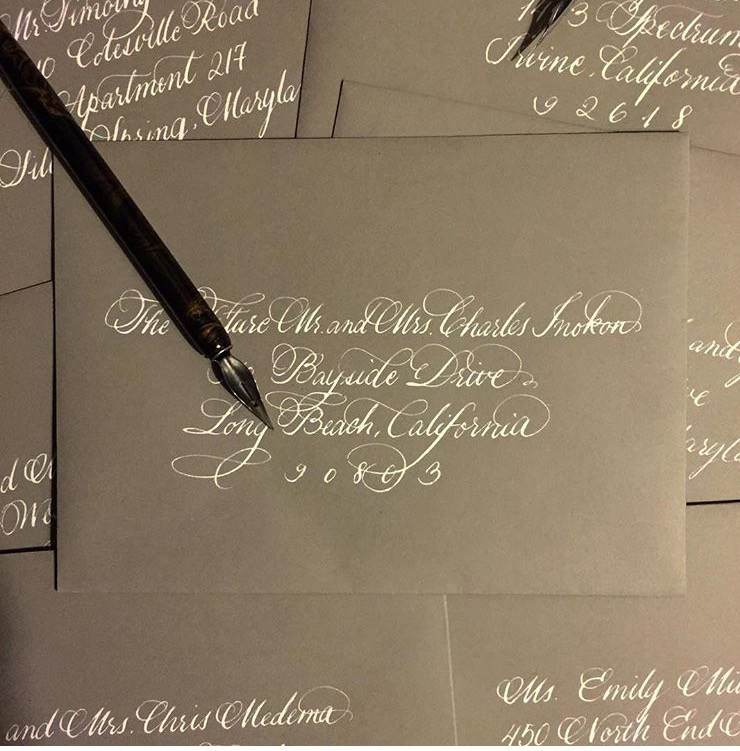 Mr. Timothy
Colesville Road
Apartment 217
Spring, Maryla
Spectrum
Irvine, California
92618
The Future Mr. and Mrs. Charles Inokon
Bayside Drive
Long Beach, California
90803
and
and Mrs. Chris Medema
Ms. Emily
450 North End